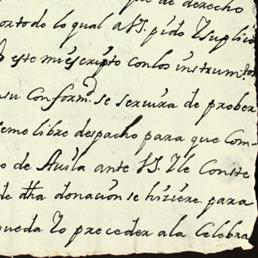 que de derecho
por todo lo qual a SS. pido y suplico
este mi escripto con los instrum.tos
su conform.d se servira de prober
seme libre despacho para que com-
o de Avila ante SS. Ile conste
de dha donacion se hiziere para
pueda lo preceder a la celebra